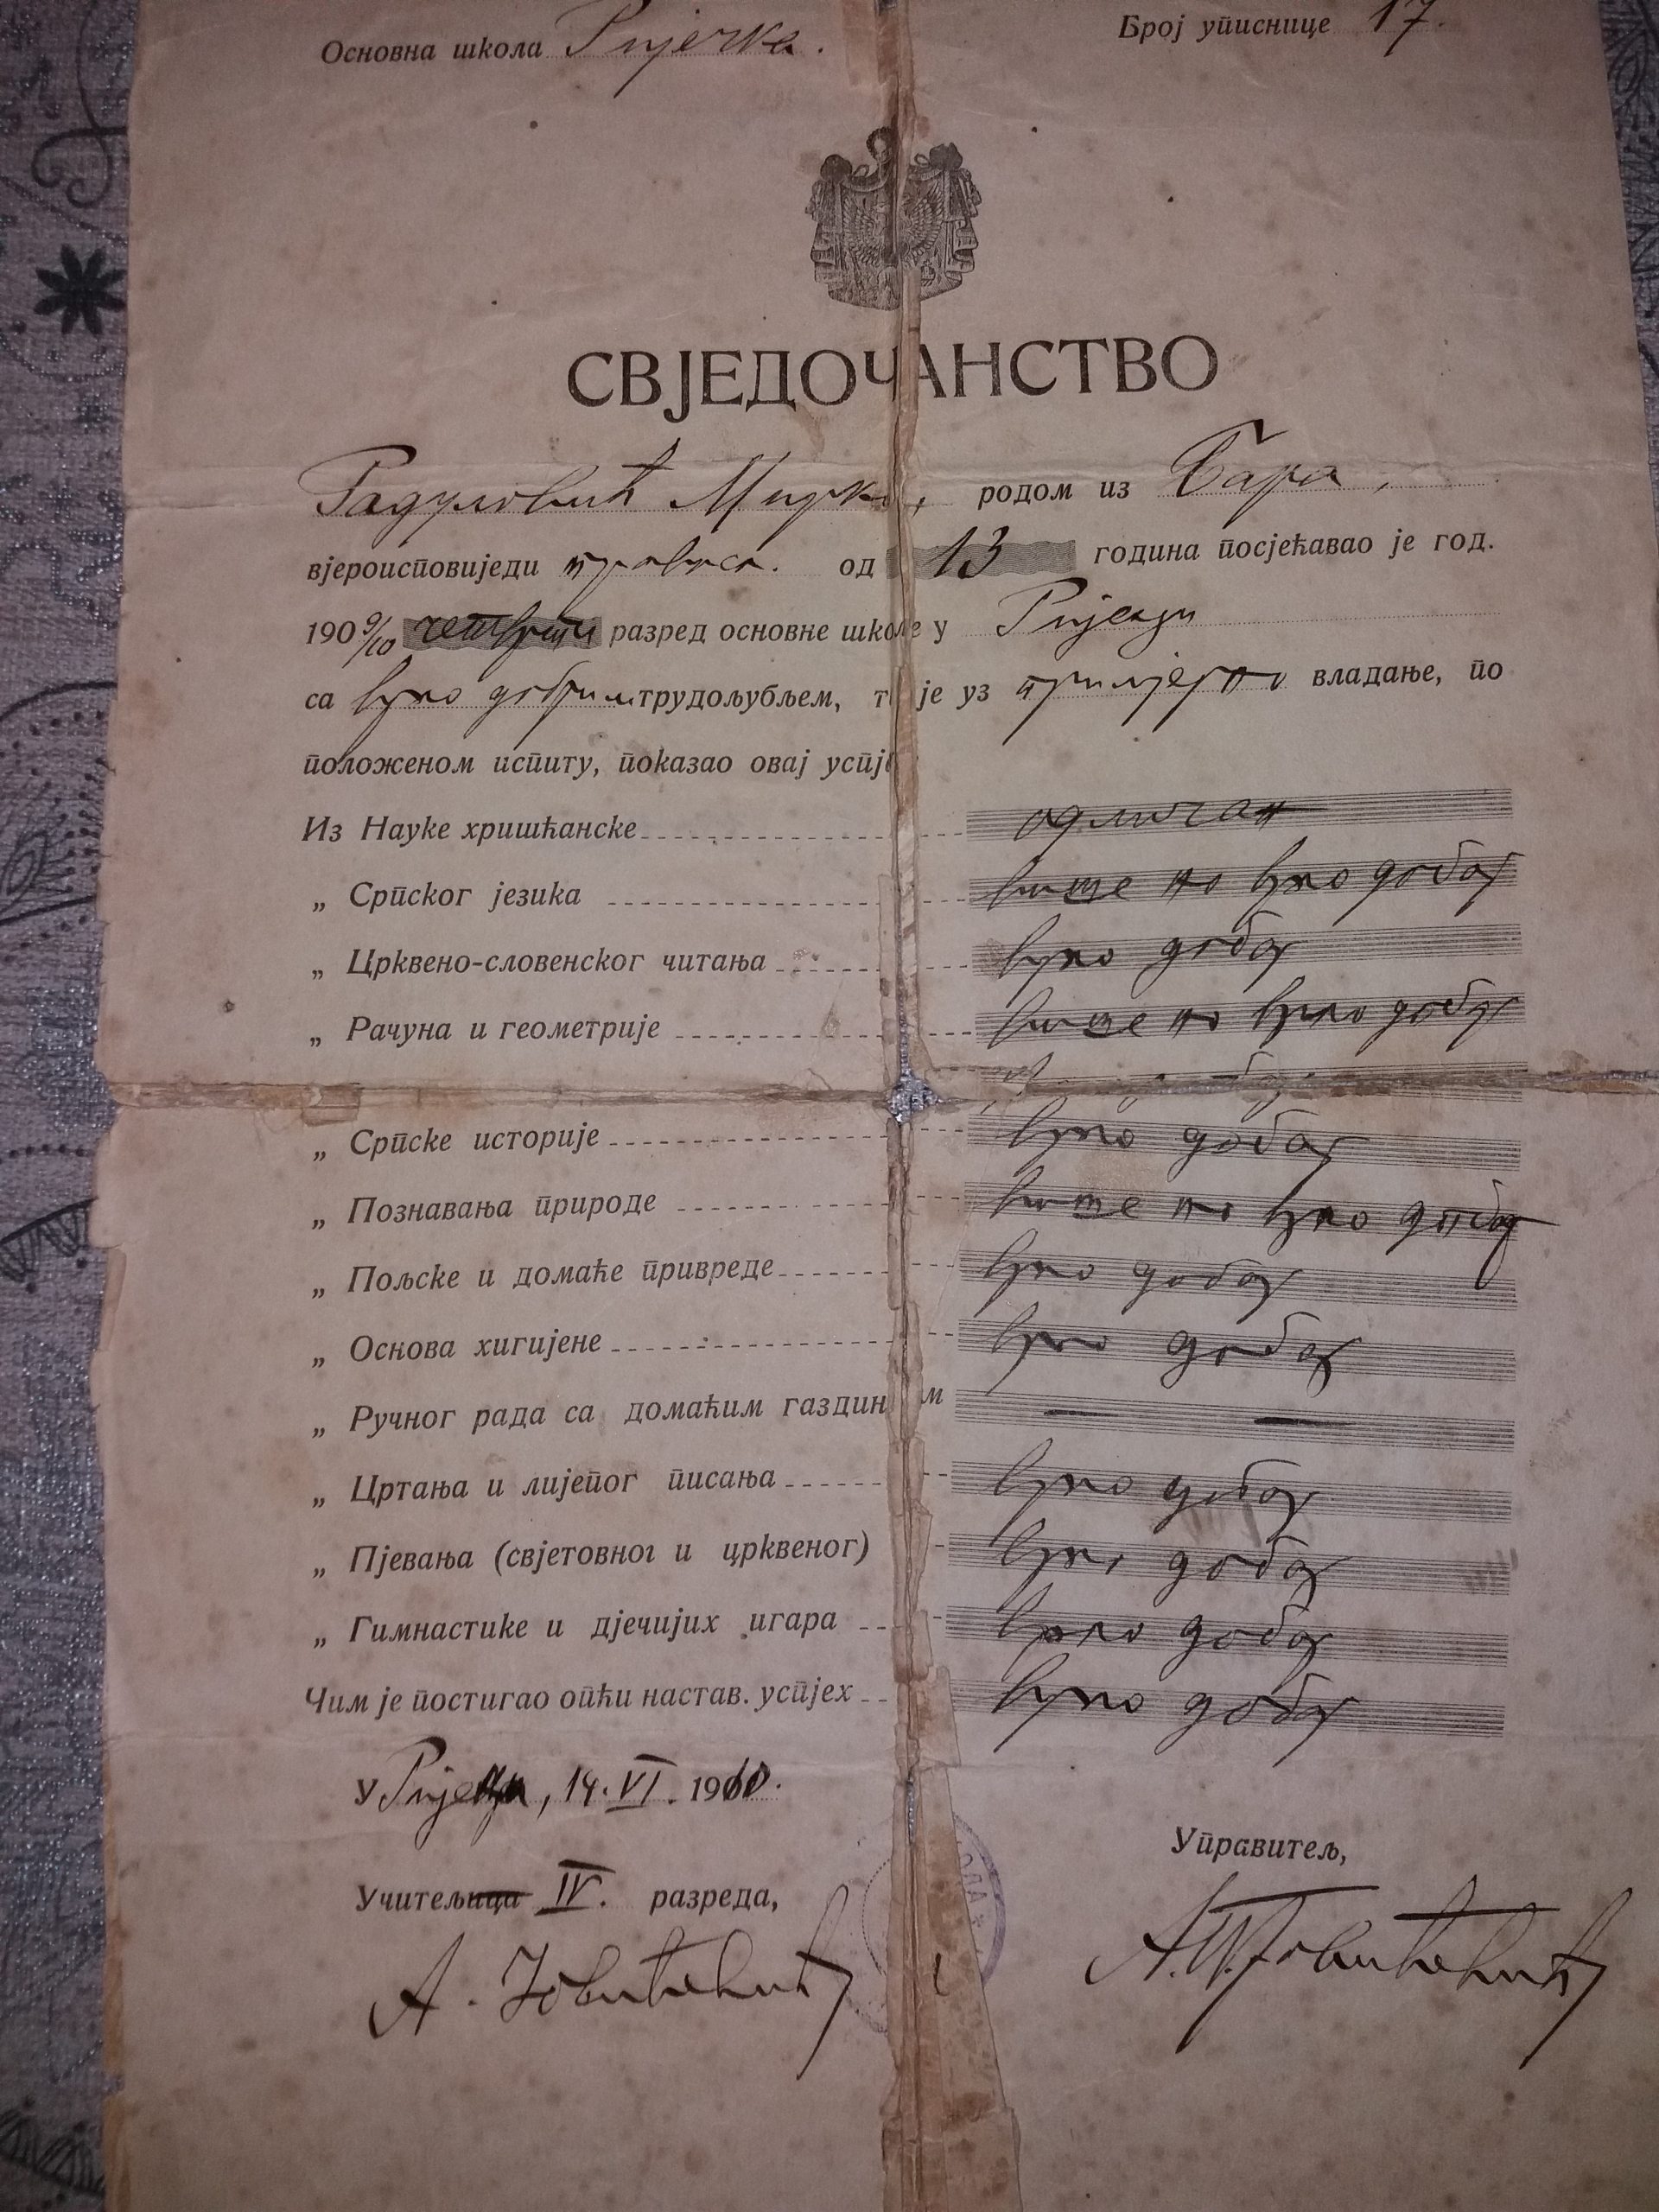 Основна школа Ријечка.
Број уписнице 17.
СВЈЕДОЧАНСТВО
Радуловић Мирко, родом из Бара,
вјероисповиједи правосл. од 13 година посјећавао је год.
1909/10 четврти разред основне школе у Ријеци
са врло добрим трудољубљем, те је уз примјерно владање, по
положеном испиту, показао овај успјех
Из Науке хришћанске одличан
„ Српског језика више но врло добар
„ Црквено-словенског читања врло добар
„ Рачуна и геометрије више но врло добар
„ Српске историје врло добар
„ Познавања природе више но врло добар
„ Пољске и домаће привреде врло добар
„ Основа хигијене врло добар
„ Ручног рада са домаћим газдинством — —
„ Цртања и лијепог писања врло добар
„ Пјевања (свјетовног и црквеног) врло добар
„ Гимнастике и дјечијих игара врло добар
Чим је постигао опћи настав. успјех врло добар
У Ријеци, 14. VI. 1910.
Управитељ,
Учитељица IV. разреда,
А. Јовићевић
А. П. Јовићевић